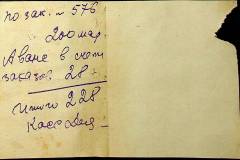 по зак. № 576
200 мар.
Аванс в счет
заказов. 28
Итого 228
Касс